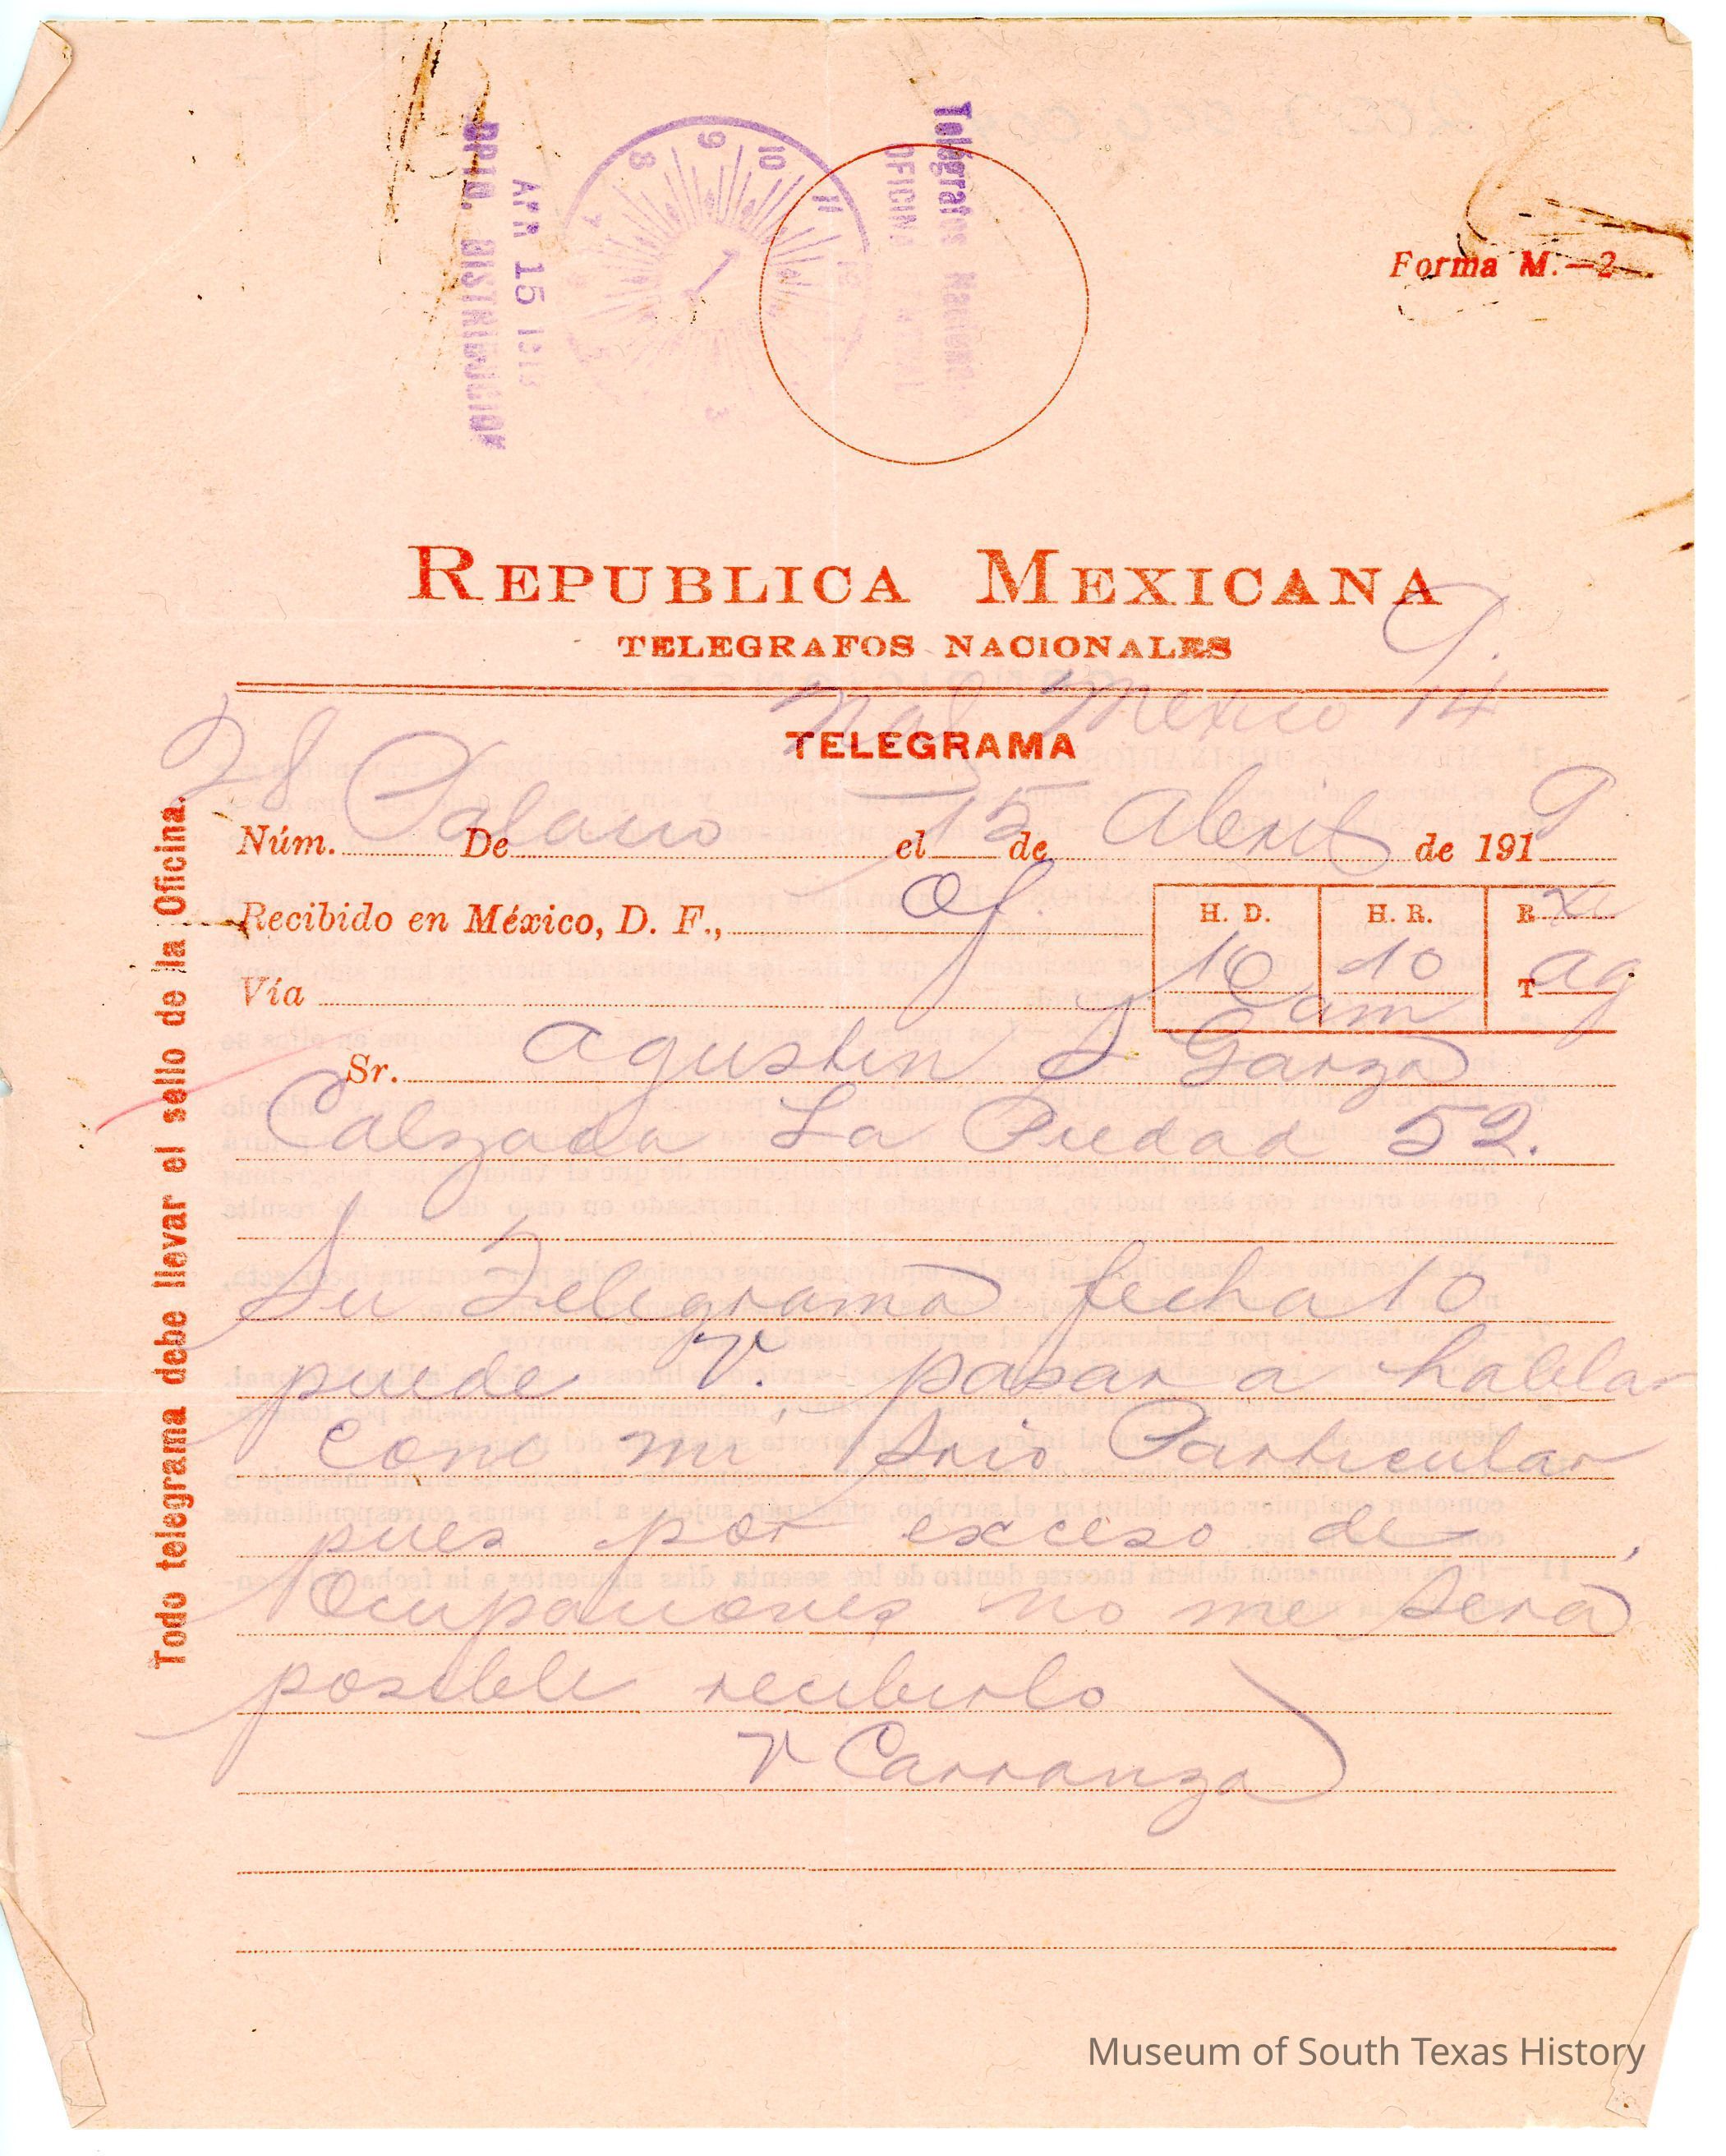 Telegrafos Nacionales
OFICINA
APR 15 191
DPTO. DISTRIBUCION
8 9 10 11
3
Forma M.—2
REPUBLICA MEXICANA
TELEGRAFOS NACIONALES
G.
Nal Mexico 14
TELEGRAMA
Núm. 28 De Palacio el 15 de Abril de 1919
Recibido en México, D. F., Of.
H. D. H. R. R
10 10 am
Vía T ag
Sr. Agustin S Garza
Calzada La Piedad 52.
Su Telegrama fecha 10
puede V. pasar a hablar
con mi Srio Particular
pues por exceso de
Ocupaciones no me sera
posible recibirlo
V Carranza
Todo telegrama debe llevar el sello de la Oficina.
Museum of South Texas History